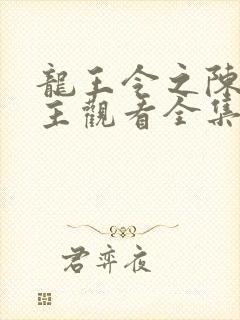 龍王令之陳
王觀看全集
君弈夜